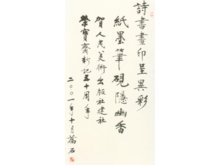 詩書畫印呈異彩
紙墨筆硯隱幽香
賀人民美術出版社建社
榮寳齋新記五十周年
二〇〇一年十月